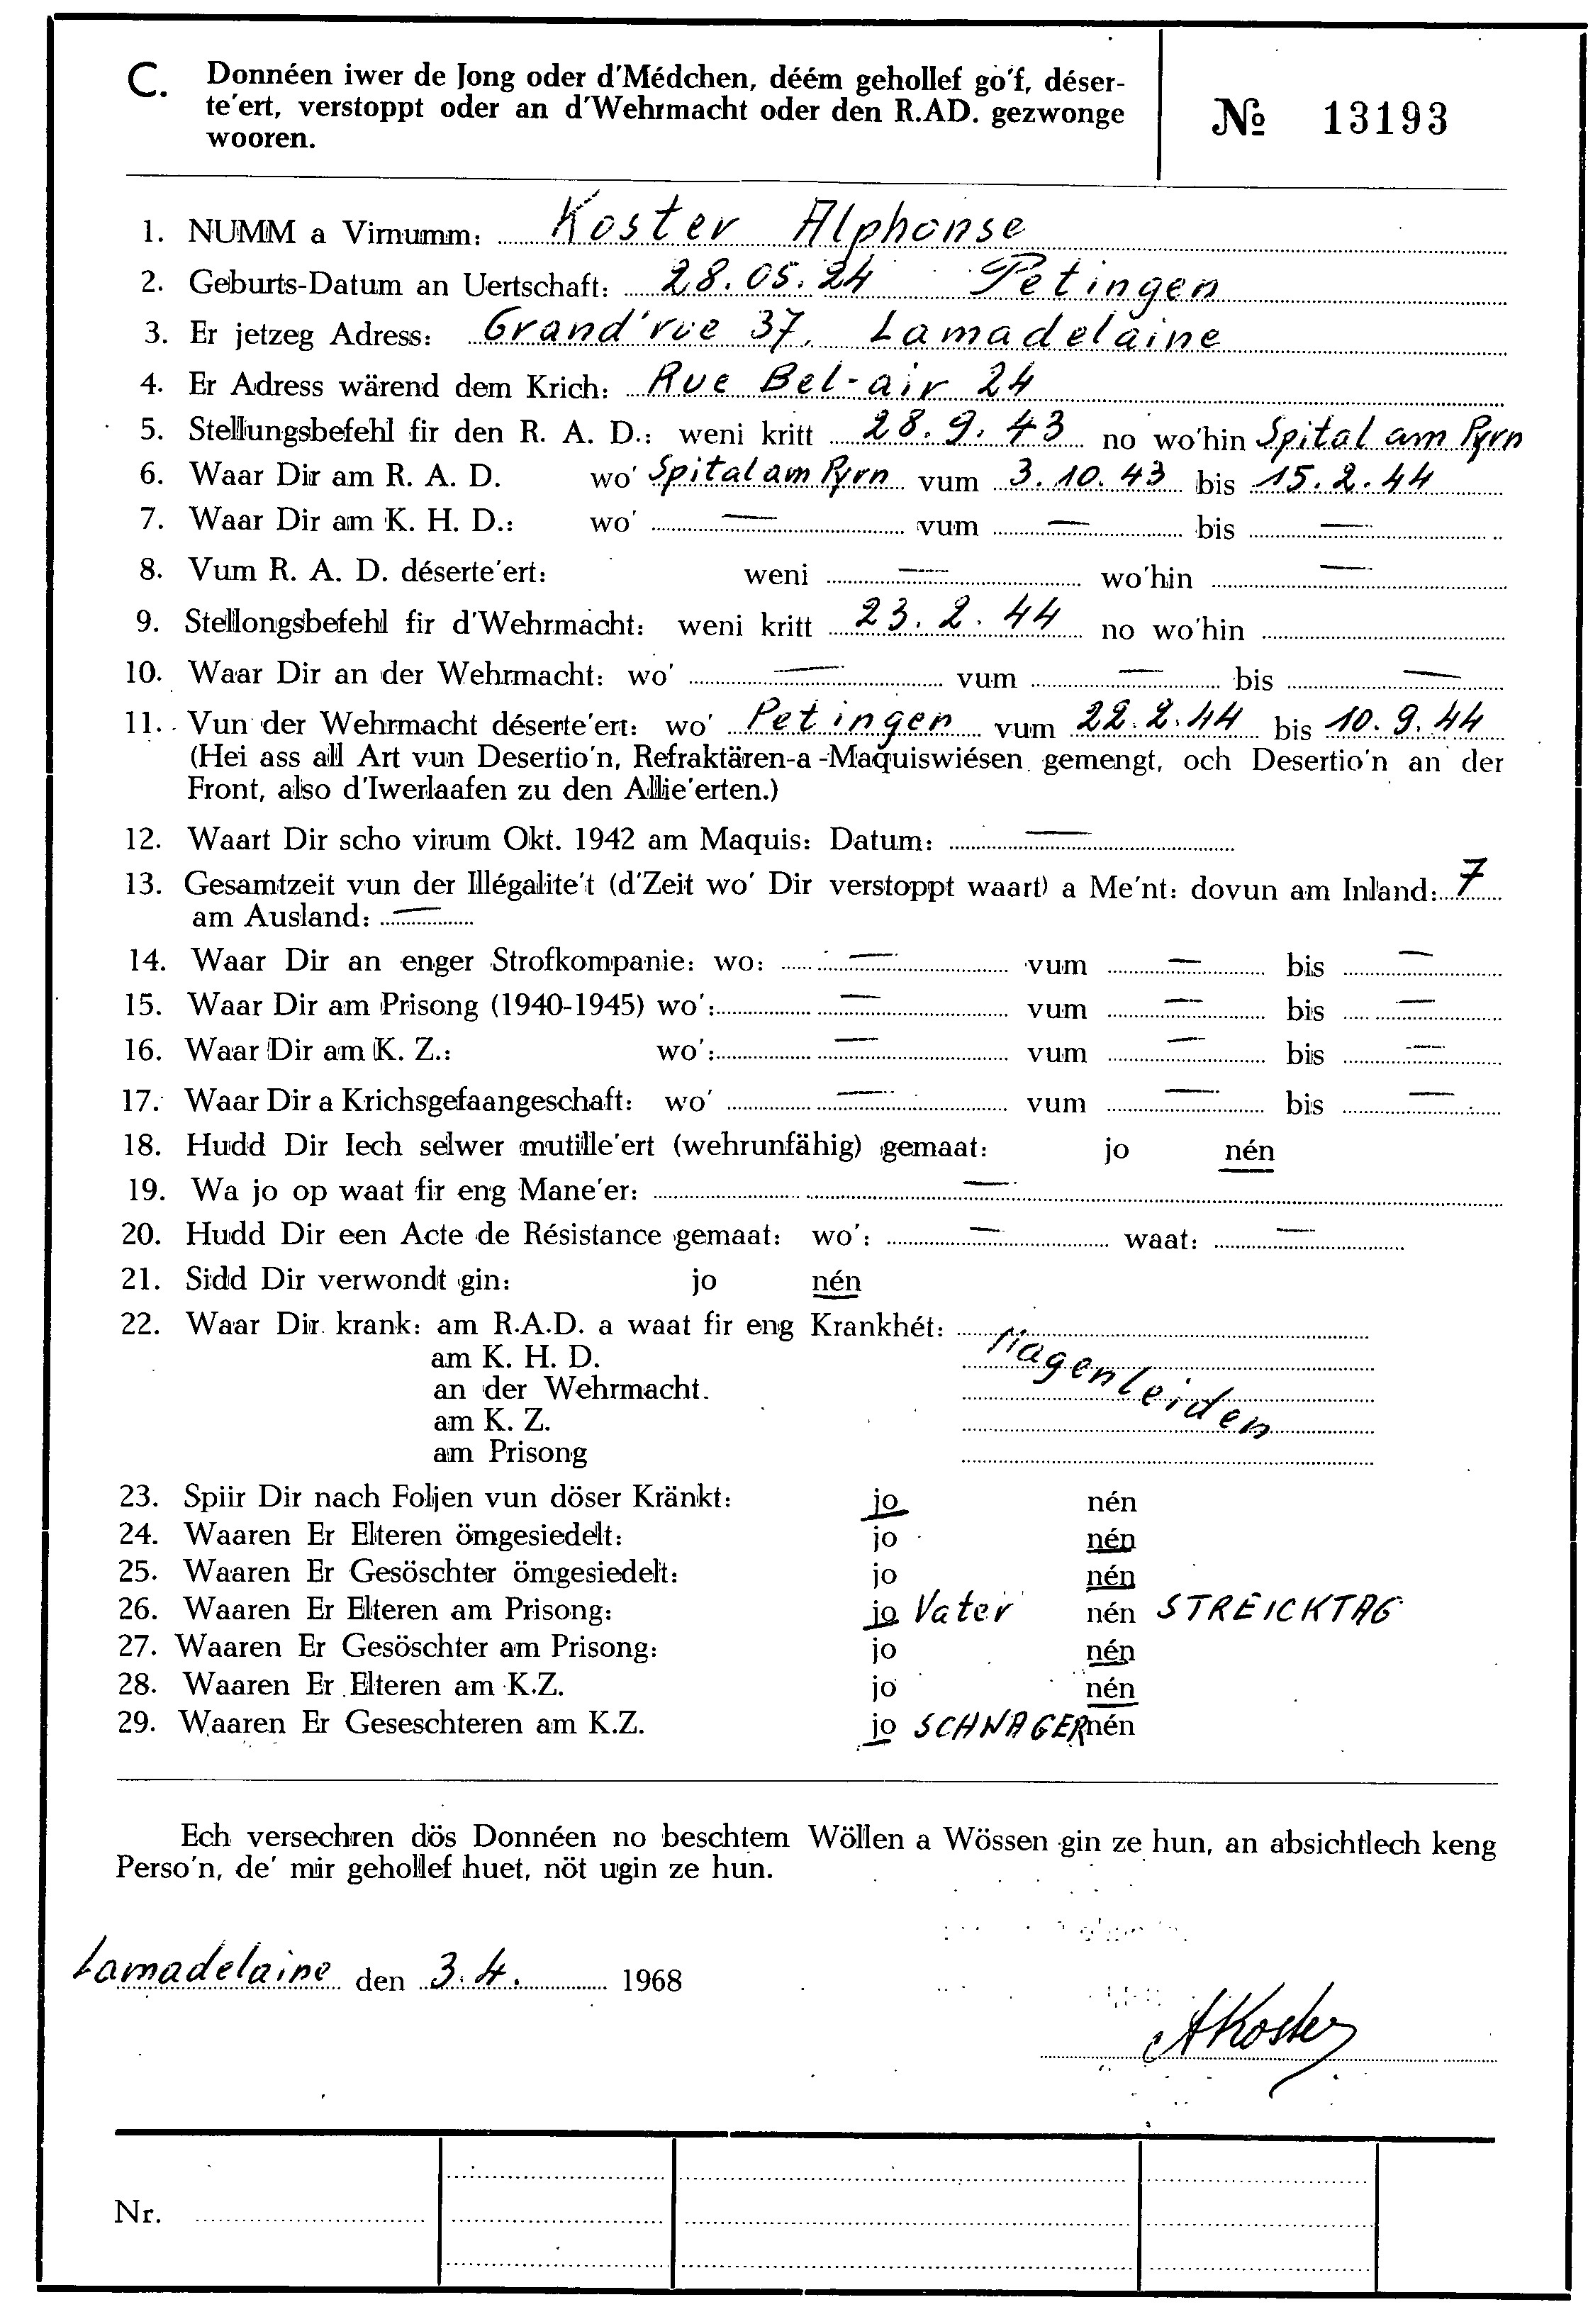 C. Donnéen iwer de Jong oder d'Médchen, déém gehollef go'f, déser-
te'ert, verstoppt oder an d'Wehrmacht oder den R.AD. gezwonge
wooren.
№ 13193
1. NUMM a Virnumm: Koster Alphonse
2. Geburts-Datum an Uertschaft: 28.05.24 Petingen
3. Er jetzeg Adress: Grand'rue 37, Lamadelaine
4. Er Adress wärend dem Krich: Rue Bel-air 24
5. Stellungsbefehl fir den R. A. D.: weni kritt 28.9.43 no wo'hin Spital am Pyrn
6. Waar Dir am R. A. D. wo' Spital am Pyrn vum 3.10.43 bis 15.2.44
7. Waar Dir am K. H. D.: wo' — vum — bis —
8. Vum R. A. D. déserte'ert: weni — wo'hin —
9. Stellongsbefehl fir d'Wehrmacht: weni kritt 23.2.44 no wo'hin
10. Waar Dir an der Wehrmacht: wo' — vum — bis —
11. Vun der Wehrmacht déserte'ert: wo' Petingen vum 22.2.44 bis 10.9.44
(Hei ass all Art vun Desertio'n, Refraktären-a-Maquiswiésen gemengt, och Desertio'n an der
Front, also d'Iwerlaafen zu den Allie'erten.)
12. Waart Dir scho virum Okt. 1942 am Maquis: Datum: —
13. Gesamtzeit vun der Illégalite't (d'Zeit wo' Dir verstoppt waart) a Me'nt: dovun am Inland: 7
am Ausland: —
14. Waar Dir an enger Strofkompanie: wo: — vum — bis —
15. Waar Dir am Prisong (1940-1945) wo': — vum — bis —
16. Waar Dir am K. Z.: wo': — vum — bis —
17. Waar Dir a Krichsgefaangeschaft: wo' — vum — bis —
18. Hudd Dir Iech selwer mutille'ert (wehrunfähig) gemaat: jo nén
19. Wa jo op waat fir eng Mane'er: —
20. Hudd Dir een Acte de Résistance gemaat: wo': — waat: —
21. Sidd Dir verwondt gin: jo nén
22. Waar Dir krank: am R.A.D. a waat fir eng Krankhét: Magenleiden
am K. H. D.
an der Wehrmacht.
am K. Z.
am Prisong
23. Spiir Dir nach Foljen vun döser Kränkt: jo nén
24. Waaren Er Elteren ömgesiedelt: jo nén
25. Waaren Er Gesöschter ömgesiedelt: jo nén
26. Waaren Er Elteren am Prisong: jo Vater nén STREICKTAG
27. Waaren Er Gesöschter am Prisong: jo nén
28. Waaren Er Elteren am K.Z. jo nén
29. Waaren Er Geseschteren am K.Z. jo SCHWAGER nén
Ech versechren dös Donnéen no beschtem Wöllen a Wössen gin ze hun, an absichtlech keng
Perso'n, de' mir gehollef huet, nöt ugin ze hun.
Lamadelaine den 3.4. 1968
AKoster
Nr.